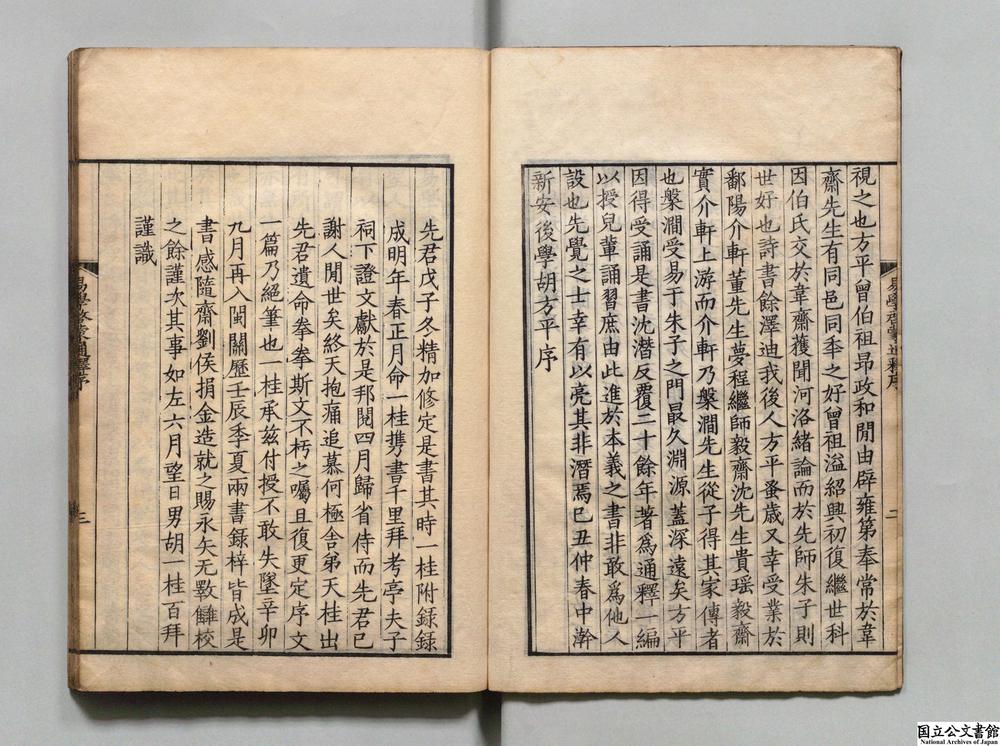 視之也方平曾伯祖昻政和閒由辟雍第奉常於韋
齋先生有同邑同秊之好曾祖溢紹興初復繼世科
因伯氏交於韋齋獲聞河洛緒論而於先師朱子則
世好也詩書餘澤迪我後人方平蚤歲又幸受業於
鄱陽介軒董先生夢程繼師毅齋沈先生貴瑶毅齋
實介軒上游而介軒乃槃澗先生從子得其家傳者
也槃澗受易于朱子之門最久淵源蓋深遠矣方平
因得受誦是書沈潛反覆二十餘年著爲通釋一編
以授兒輩誦習庶由此進於本義之書非敢爲他人
設也先覺之士幸有以亮其非潛焉巳丑仲春中澣
新安後學胡方平序
易學啓蒙通釋序
二
先君戊子冬精加修定是書其時一桂附錄錄
成明年春正月命一桂携書千里拜考亭夫子
祠下證文獻於是邦閱四月歸省侍而先君已
謝人閒世矣終天抱痛追慕何極舎弟天桂出
先君遺命拳拳斯文不朽之囑且復更定序文
一篇乃絕筆也一桂承兹付授不敢失墜辛卯
九月再入閩關歷壬辰季夏兩書錄梓皆成是
書感隨齋劉侯捐金造就之賜永矢无斁讎校
之餘謹次其事如左六月望日男胡一桂百拜
謹識
易學啓蒙通釋序
三
国立公文書館
National Archives of Japan